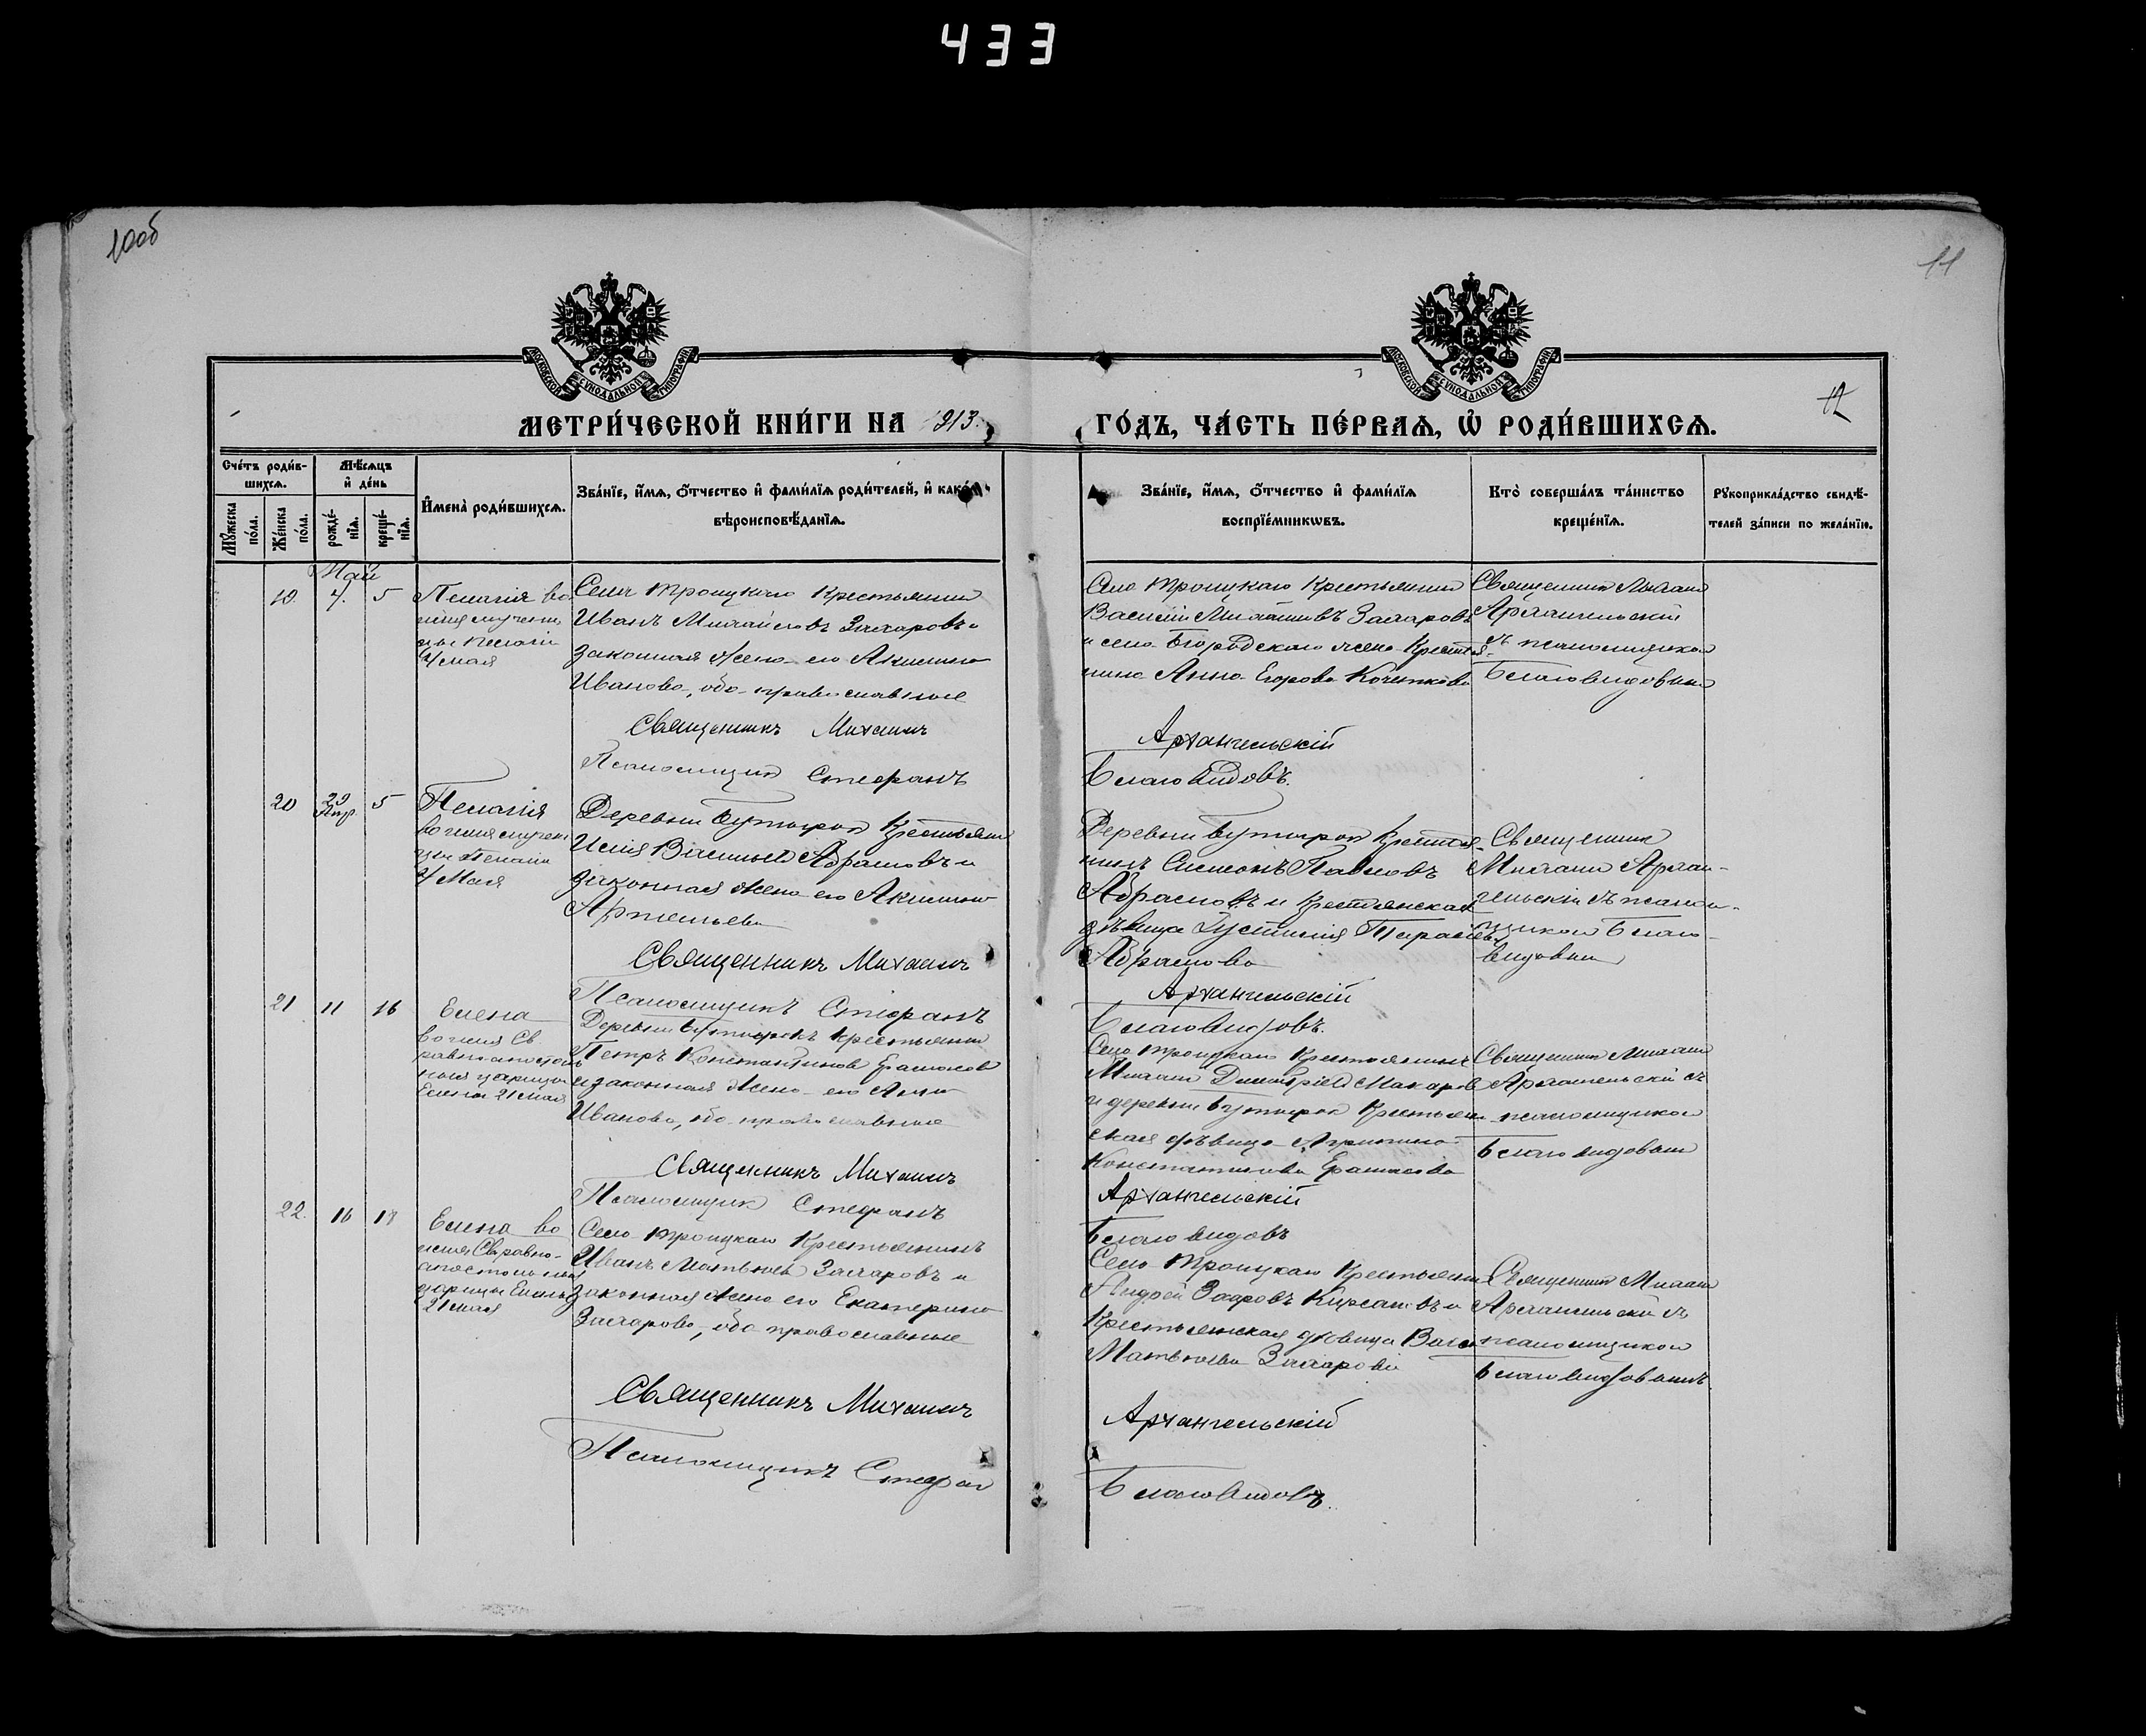 433
10об
11
12
МОСКОВСКОЙ СѴНОДАЛЬНОЙ ТИПОГРАФІИ
МОСКОВСКОЙ СѴНОДАЛЬНОЙ ТИПОГРАФІИ
МЕТРИ́ЧЕСКОЙ КНИ́ГИ НА 1913.
ГО́ДЪ, ЧА́СТЬ ПЕ́РВАѦ, Ѡ҆ РОДИ́ВШИХСѦ.
Сче́тъ роди́в-
шихсѧ.
Мѣ́сѧцъ
и҆ де́нь
Мꙋ́жеска
по́ла.
Же́нска
по́ла.
рожде́-
нїѧ.
креще́-
нїѧ.
И҆мена̀ роди́вшихсѧ.
Зва́нїе, и҆́мѧ, ѻ҆́тчество и҆ фами́лїѧ роди́телей, и҆ како́гѡ
вѣроисповѣ́данїѧ.
Зва́нїе, и҆́мѧ, ѻ҆́тчество и҆ фами́лїѧ
воспрїе́мникѡвъ.
Кто̀ соверша́лъ та́инство
креще́нїѧ.
Рꙋкоприкла́дство свидѣ́-
телей за́писи по жела́нїю.
Май
19. 4. 5 Пелагія во
имя мучени
цы Пелагіи
4 мая
Села Троицкаго Крестьянин
Иванъ Михайловъ Захаровъ и
законная жена его Акилина
Иванова, оба православные
Священникъ Михаилъ
Псаломщик Стефанъ
Села Троицкаго Крестьянин
Василій Михайловъ Захаровъ
и села Богородскаго жена Крестья-
нина Анна Егорова Кочеткова
Архангельскій
Благовидовъ.
Священник Михаил
Архангельскій
съ псаломщиком
Благовидовым
20 29 Апр 5 Пелагія
во имя мучени
цы Пелагіи
4 Мая
Деревни Бутырок Крестьянин
Илія Васильев Абрамовъ и
законная жена его Акилина
Артемьева
Священникъ Михаилъ
Псаломщикъ Стефанъ
Деревни Бутырок Крестья-
нинъ Симеонъ Павловъ
Абрамовъ и Крестьянская
дѣвица Іустинія
Абрамова
Архангельскій
Благовидовъ.
Священник
Михаил Архан-
гельскій съ псалом-
щиком Благо-
видовым
21 11 16 Елена
во имя Св
равноапостоль
ныя царицы
Елены 21 мая
Деревни Бутырокъ Крестьянин
Петръ Константинов
и законная жена его Анна
Иванова, оба православные
Священникъ Михаилъ
Псаломщик Стефанъ
Села Троицкаго Крестьянинъ
Михаил Димитріев Макаров
и деревни Бутырок Крестьян
ская дѣвица
Константинова
Архангельскій
Благовидовъ
Священник Михаил
Архангельскій съ
псаломщиком
Благовидовым
22. 16 18 Елена во
имя Св. равно-
апостольныя
царицы Елены
21 мая
Села Троицкаго Крестьянинъ
Иванъ Матвѣев Захаровъ и
законная жена его Екатерина
Захарова, оба православные
Священникъ Михаилъ
Псаломщикъ Стефан
Села Троицкаго Крестьянин
Андрей Кирсановъ и
Крестьянская дѣвица
Матвѣева Захарова
Архангельскій
Благовидовъ.
Священник Михаил
Архангельскій съ
псаломщиком
Благовидовымъ